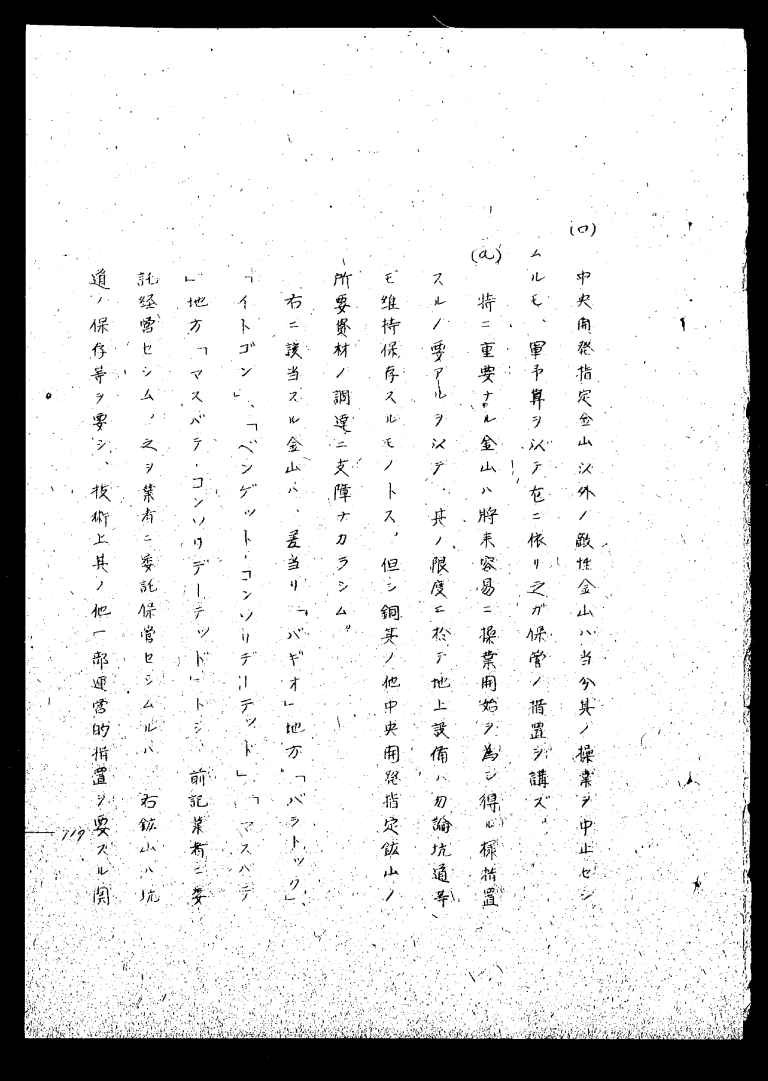 (ロ)
中央開発指定金山以外ノ敵性金山ハ当分其ノ操業ヲ中止セシ
ムルモ、軍予算ヲ以テ左ニ依リ之ガ保管ノ措置ヲ講ズ。
(a)
特ニ重要ナル金山ハ将来容易ニ操業開始ヲ為シ得ル様措置
スルノ要アルヲ以テ、其ノ限度ニ於テ地上設備ハ勿論坑道等
モ維持保存スルモノトス。但シ銅其ノ他中央開発指定鉱山ノ
所要資材ノ調達ニ支障ナカラシム。
右ニ該当スル金山ハ、差当リ「バギオ」地方「バラトック」、
「イトゴン」、「ベンゲット・コンソリデーテッド」、「マスバテ
」地方「マスバテ・コンソリデーテッド」トシ、前記業者ニ委
託経営セシム。之ヲ業者ニ委託保管セシムルハ 右鉱山ハ坑
道ノ保存等ヲ要シ、技術上其ノ他一部運営的措置ヲ要スル関